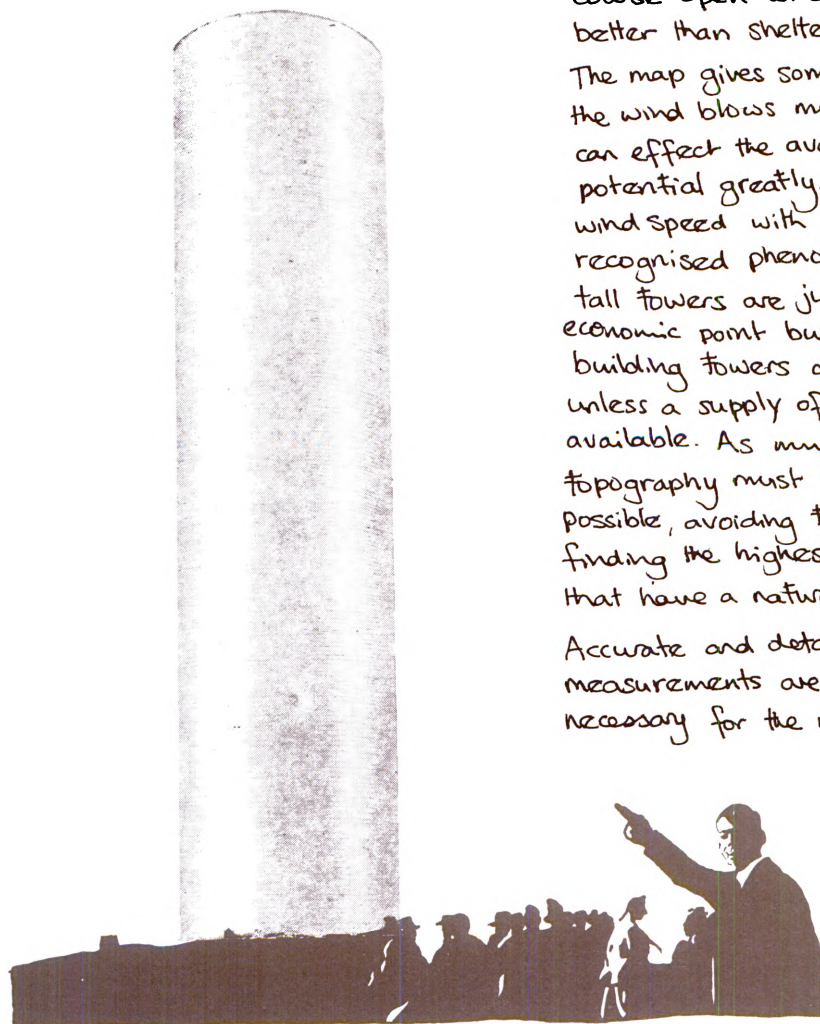 better than shelte
The map gives som
the wind blows m
can effect the ava
potential greatly.
wind speed with
recognised pheno
tall towers are ju
economic point bu
building towers a
unless a supply of
available. As mu
topography must
possible, avoiding t
finding the highes
that have a natur
Accurate and deta
measurements are
necessary for the